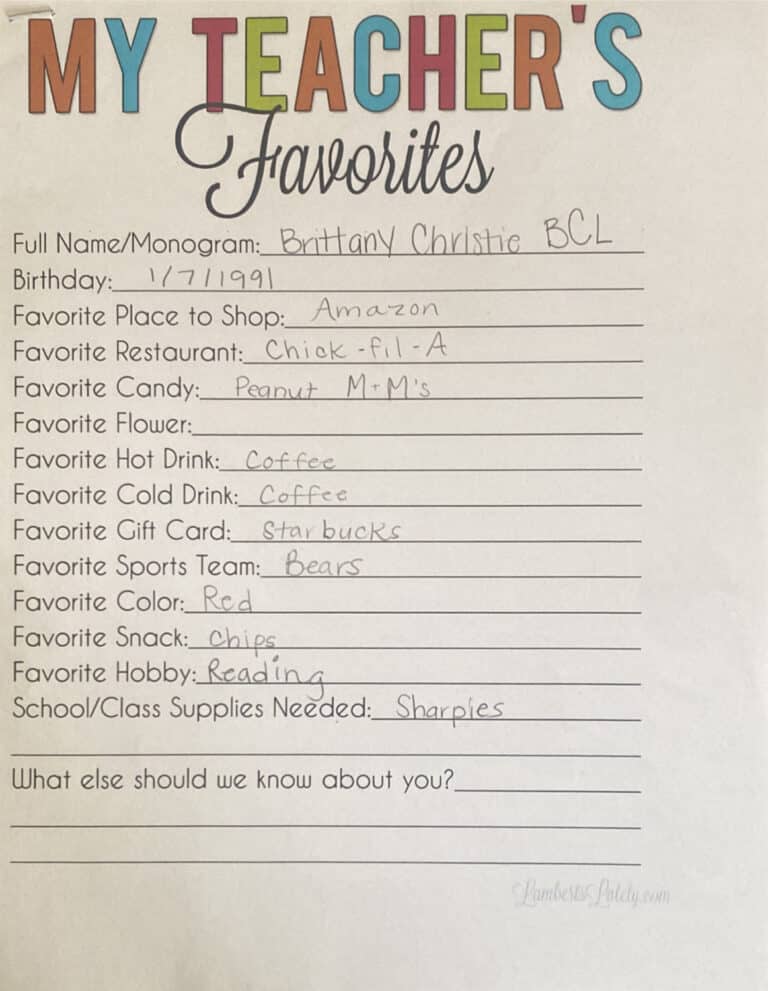 MY TEACHER'S
Favorites
Full Name/Monogram: Brittany Christie BCL
Birthday: 1/7/1991
Favorite Place to Shop: Amazon
Favorite Restaurant: Chick-fil-A
Favorite Candy: Peanut M+M's
Favorite Flower:
Favorite Hot Drink: Coffee
Favorite Cold Drink: Coffee
Favorite Gift Card: Starbucks
Favorite Sports Team: Bears
Favorite Color: Red
Favorite Snack: chips
Favorite Hobby: Reading
School/Class Supplies Needed: Sharpies
What else should we know about you?
LambertsLately.com